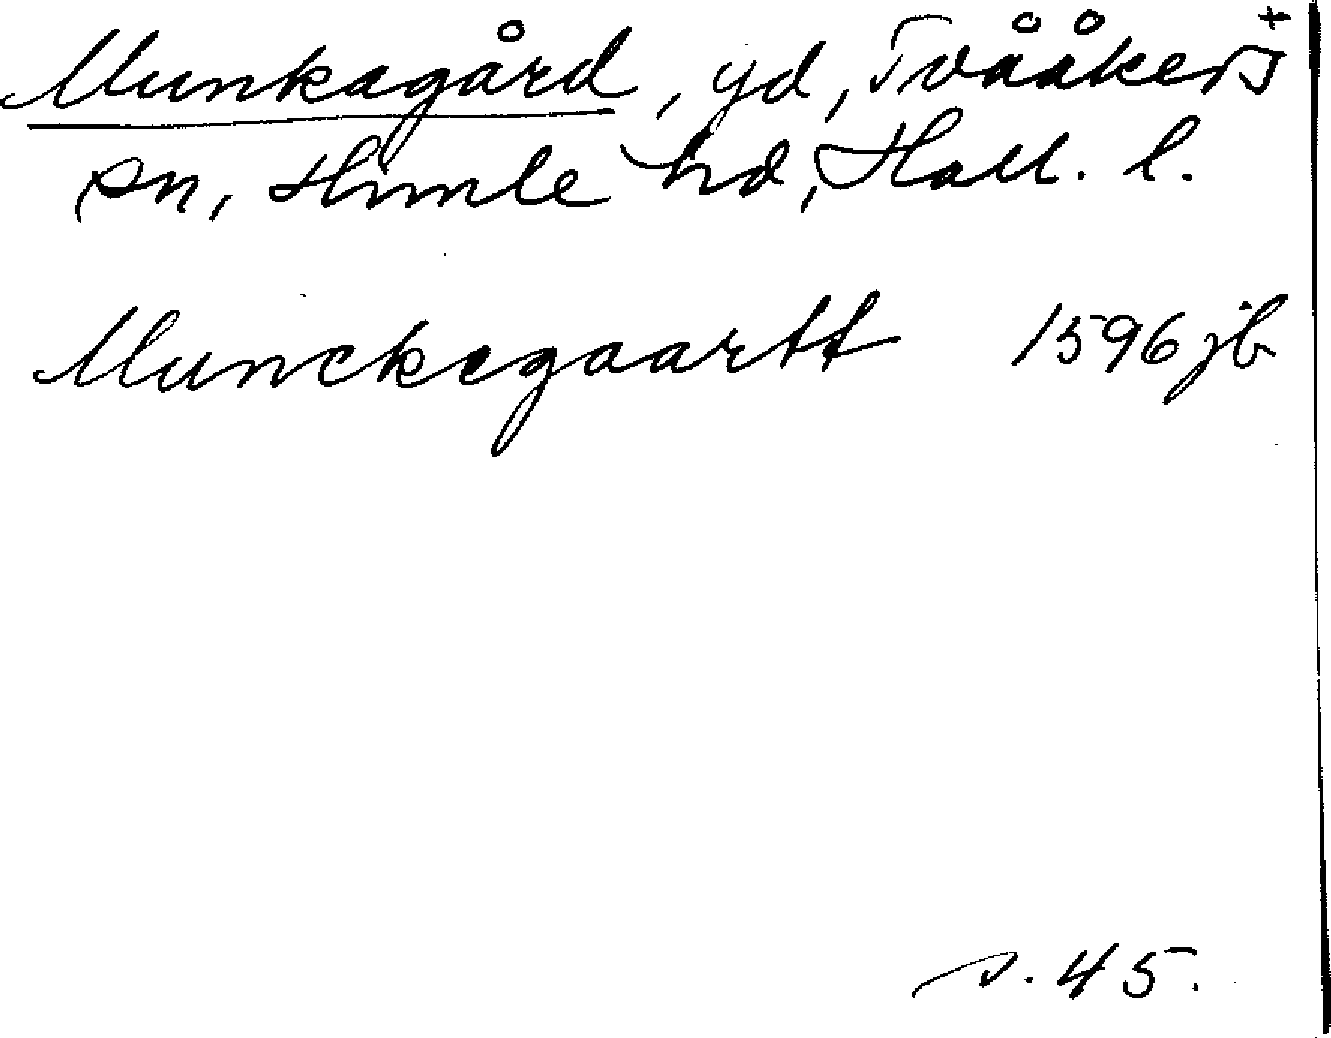 Munkagård, gd, Tvååkers +
sn, Himle hd, Hall. l.
Munckegaartt 1596 jb
s. 45.